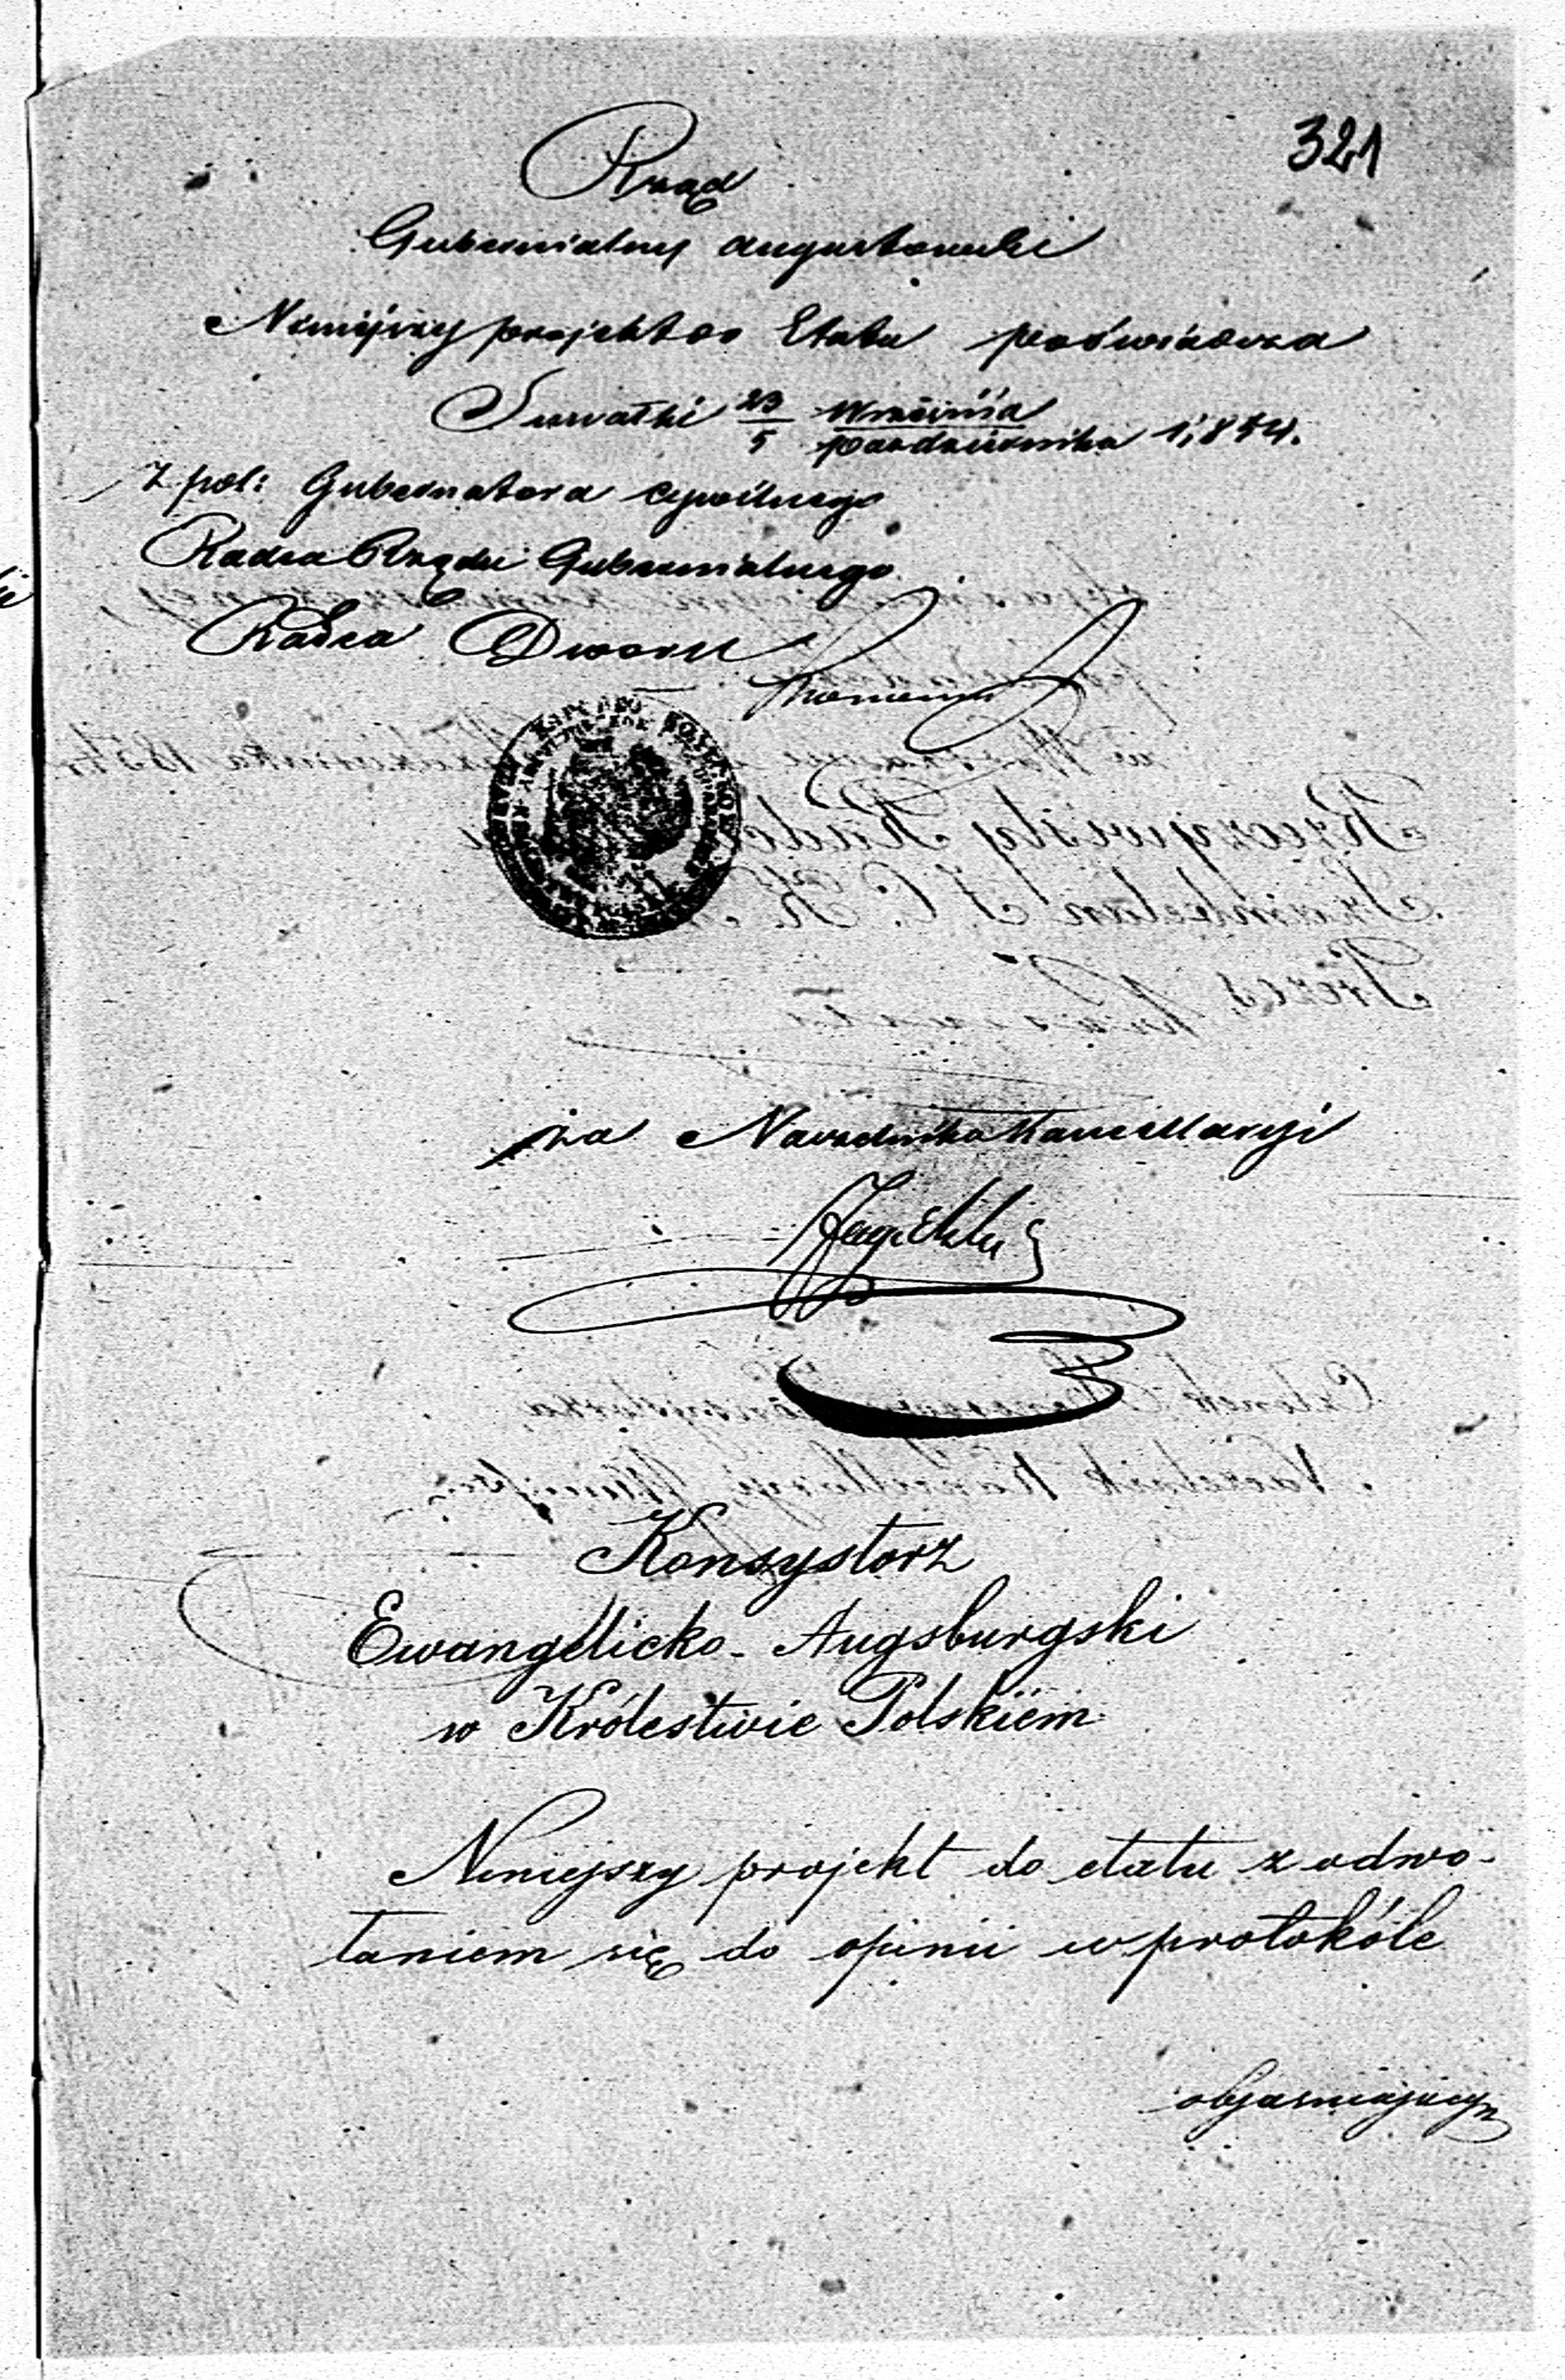 321
Rząd
Gubernialny Augustowski
Niniejszy projekt do Etatu poświadcza
Suwałki 23/5 Września/Października 1,854.
Z pol: Gubernatora Cywilnego
Radca Rządu Gubernialnego
Radca Dworu
za Naczelnika Kancellaryi
Konsystorz
Ewangelicko-Augsburgski
w Królestwie Polskiém
Niniejszy projekt do etatu z odwo-
łaniem się do opinii w protokóle
objasniającym